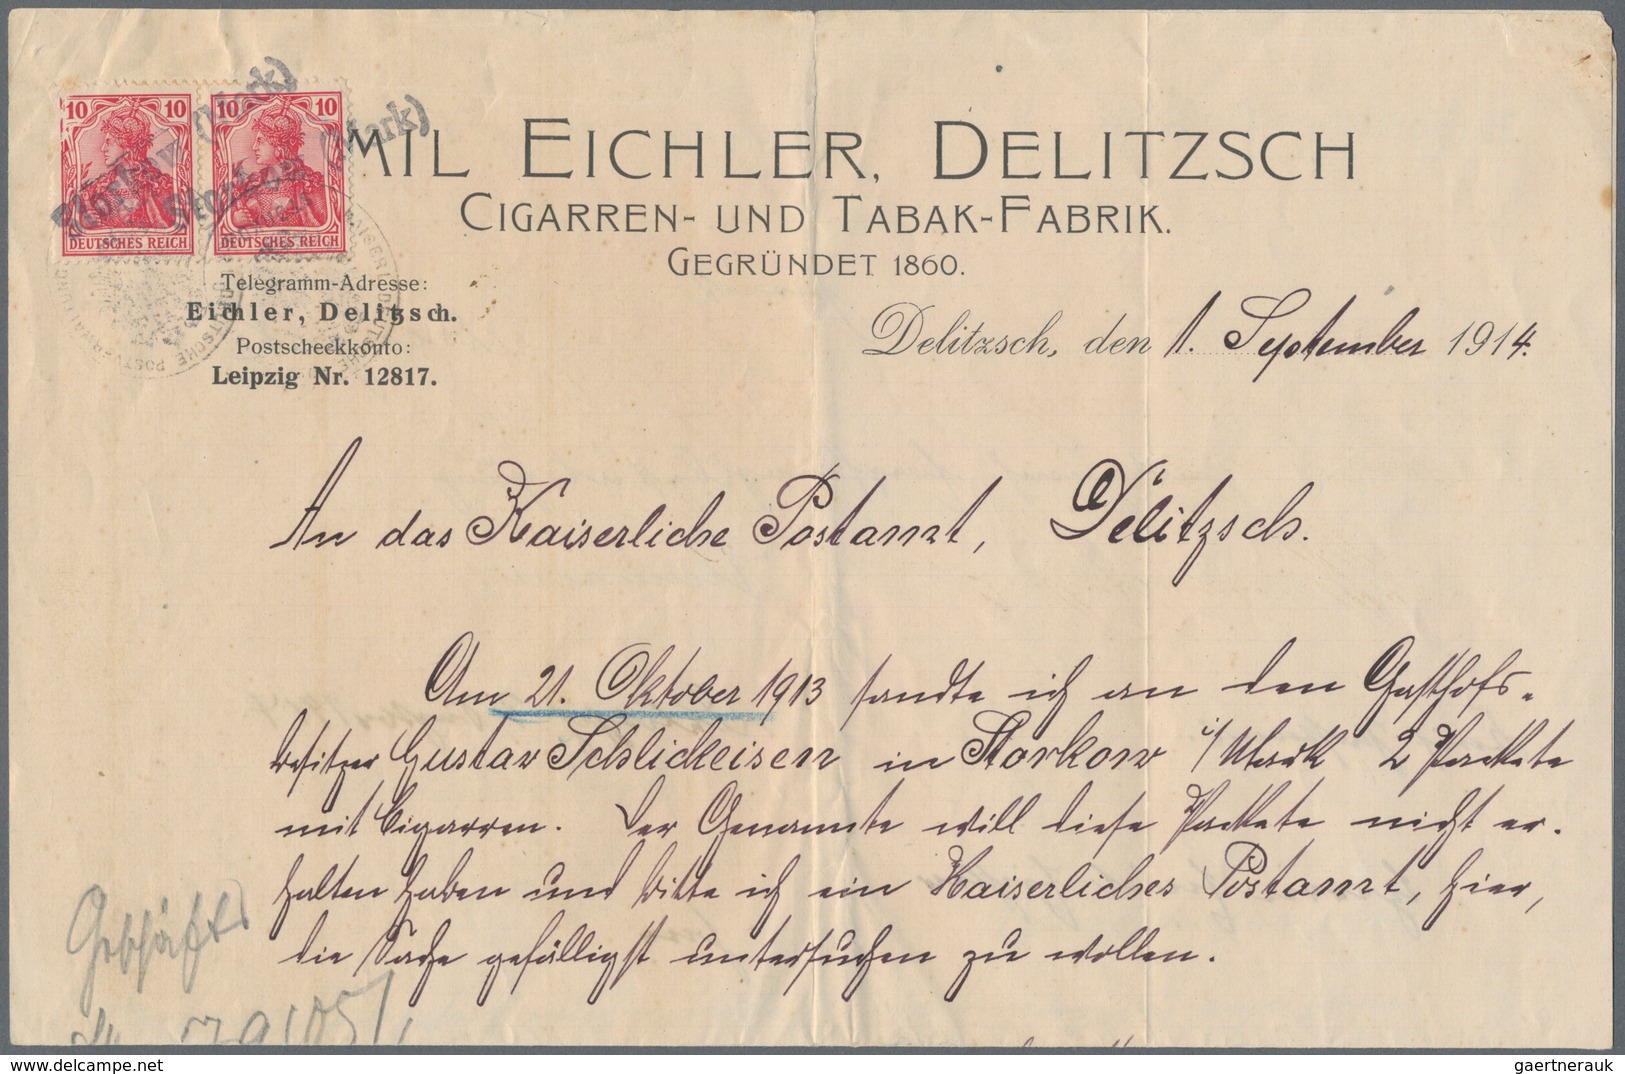 10 10 10 10
DEUTSCHES REICH DEUTSCHES REICH
Storkow (Mark)
Storkow (Mark)
MIL EICHLER, DELITZSCH
CIGARREN- UND TABAK-FABRIK.
GEGRÜNDET 1860.
Telegramm-Adresse:
Eichler, Delitzsch.
Postscheckkonto:
Leipzig Nr. 12817.
Delitzsch, den 1. September 1914.
An das Kaiserliche Postamt, Delitzsch.
Am 21. Oktober 1913 sandte ich an den Gasthofs-
besitzer Gustav Schlickeisen in Storkow i/Mark 2 Packete
mit Cigarren. Der Genannte will diese Packete nicht er-
halten haben und bitte ich ein Kaiserliches Postamt, hier,
die Sache gefälligst untersuchen zu wollen.
Geschäfts
delcampe.net
gaertnerauk